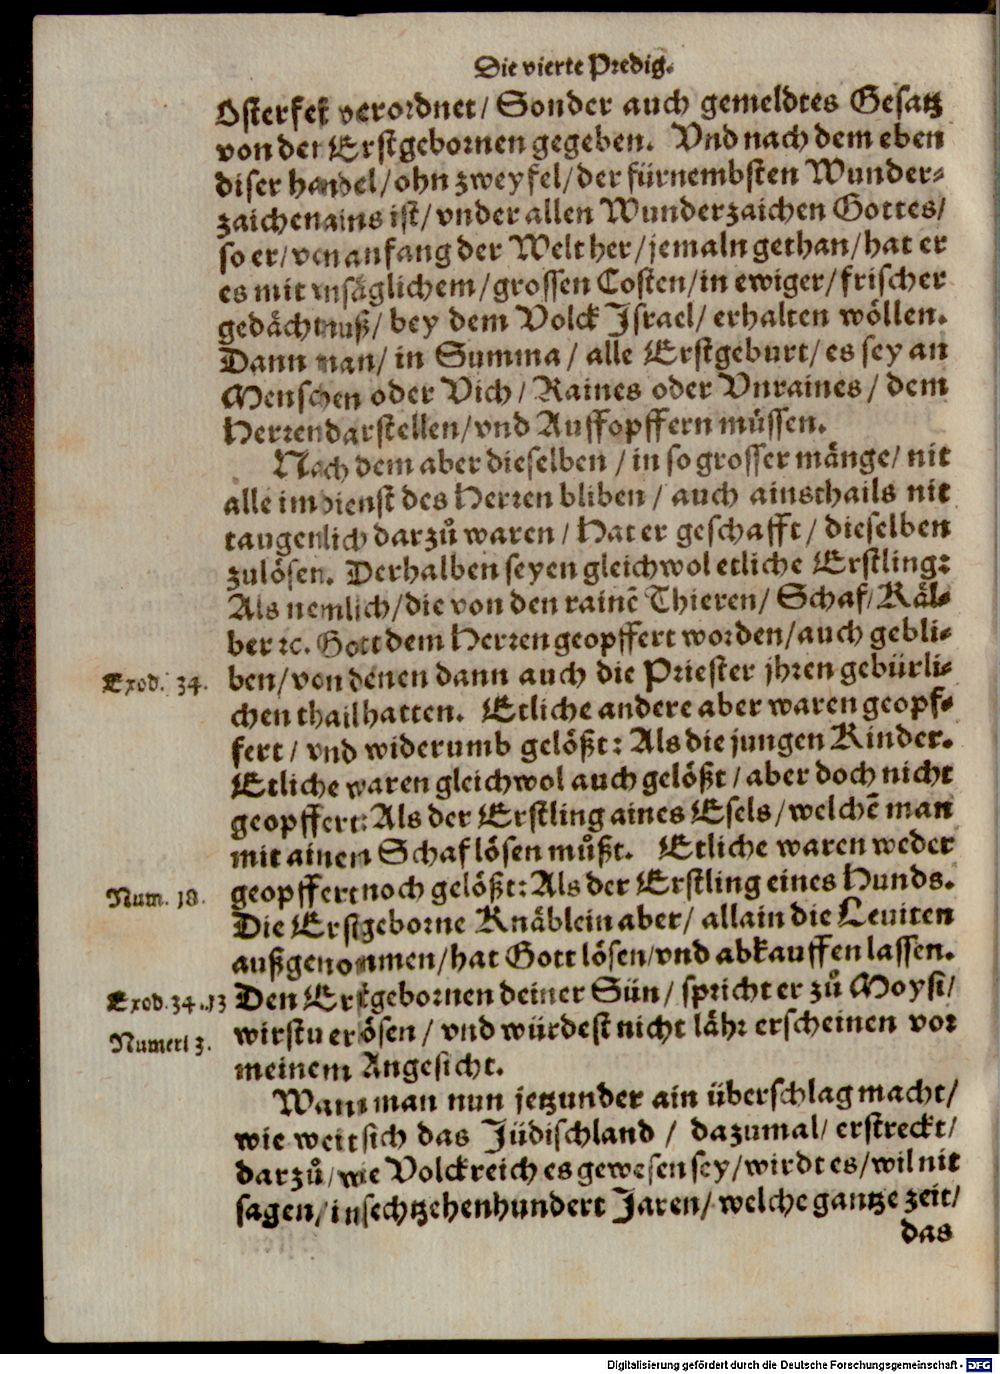 Die vierte Predig.
Osterfest verordnet/ Sonder auch gemeldtes Gesatz
von der Erstgebornen gegeben. Vnd nach dem eben
diser handel/ ohn zweyfel/ der fürnembsten Wunder-
zaichen ains ist/ vnder allen Wunderzaichen Gottes/
so er/ von anfang der Welt her/ jemaln gethan/ hat er
es mit vnsäglichem/ grossen Costen/ in ewiger/ frischer
gedächtnuß/ bey dem Volck Israel/ erhalten wöllen.
Dann man/ in Summa/ alle Erstgeburt/ es sey an
Menschen oder Vich/ Raines oder Vnraines/ dem
Herren darstellen/ vnd Auffopffern müssen.
Nach dem aber dieselben/ in so grosser mänge/ nit
alle im dienst des Herren bliben/ auch ainsthails nit
taugenlich darzů waren/ Hat er geschafft/ dieselben
zulösen. Derhalben seyen gleichwol etliche Erstling:
Als nemlich/ die von den rainẽ Thieren/ Schaf/ Käl-
ber ꝛc. Gott dem Herren geopffert worden/ auch gebli-
Exod. 34. ben/ von denen dann auch die Priester jhren gebürli-
chen thail hatten. Etliche andere aber waren geopf-
fert/ vnd widerumb gelößt: Als die jungen Rinder.
Etliche waren gleichwol auch gelößt/ aber doch nicht
geopffert: Als der Erstling aines Esels/ welchẽ man
mit ainem Schaf lösen můßt. Etliche waren weder
Num. 18. geopffert noch gelößt: Als der Erstling eines Hunds.
Die Erstgeborne Knäblein aber/ allain die Leuiten
außgenommen/ hat Gott lösen/ vnd abkauffen lassen.
Exod. 34. 13 Den Erstgebornen deiner Sün/ spricht er zů Moysi/
Numeri 3. wirstu erlösen/ vnd würdest nicht lähr erscheinen vor
meinem Angesicht.
Wann man nun jetzunder ain überschlag macht/
wie weit sich das Jüdischland/ dazumal/ erstreckt/
darzů/ wie Volckreich es gewesen sey/ wirdt es/ wil nit
sagen/ in sechtzehenhundert Jaren/ welche gantze zeit/
das
Digitalisierung gefördert durch die Deutsche Forschungsgemeinschaft - DFG